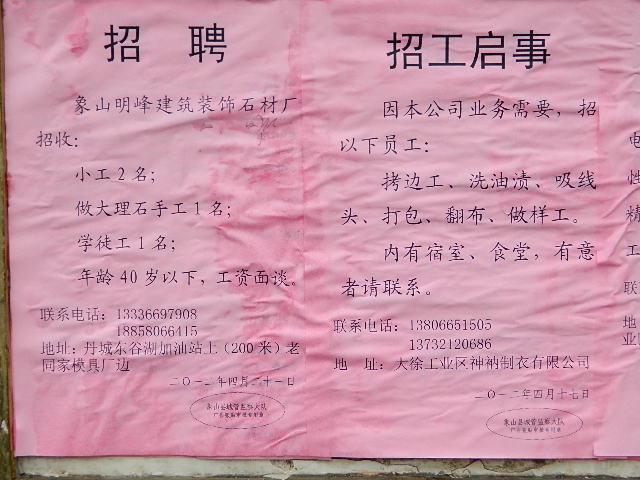 招 聘
象山明峰建筑装饰石材厂
招收：
小工2名；
做大理石手工1名；
学徒工1名；
年龄40岁以下，工资面谈。
联系电话：13336697908
18858066415
地址：丹城东谷湖加油站上（200米）老
同家模具厂边
二〇一二年四月二十一日
象山县城管监察大队
招工启事
因本公司业务需要，招
以下员工：
拷边工、洗油渍、吸线
头、打包、翻布、做样工。
内有宿室、食堂，有意
者请联系。
联系电话：13806651505
13732120686
地 址：大徐工业区神衲制衣有限公司
二〇一二年四月十七日
象山县城管监察大队
电
性
精
工
联
地
业区